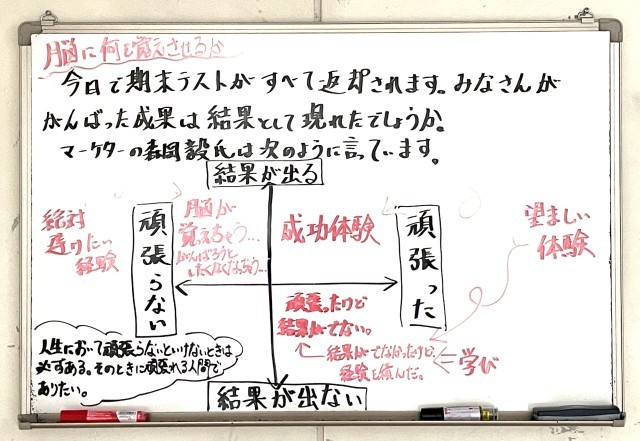 脳に何を覚えさせるか
今日で期末テストがすべて返却されます。みなさんが
がんばった成果は結果として現れたでしょうか。
マーケターの森岡毅氏は次のように言っています。
結果が出る
絶対
避けたい
経験
頑張らない
脳が
覚えちゃう…
がんばろうと
したくなくなっちゃう…
成功体験
頑張った
望ましい
体験
頑張ったけど
結果がでない。
結果がでなかったけど、
経験を積んだ。
学び
人生において頑張らないといけないときは
必ずある。そのときに頑張れる人間で
ありたい。
結果が出ない